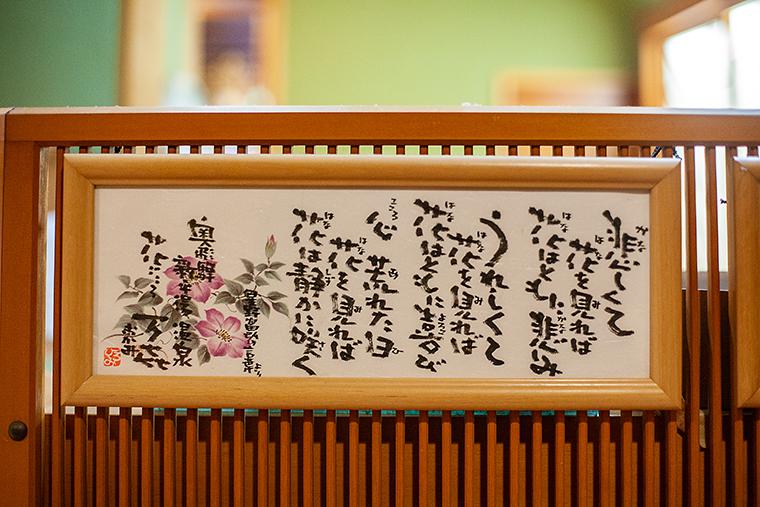 悲しくて
花を見れば
花はともに悲しみ
うれしくて
花を見れば
花はともに喜び
心 荒れた日
花を見れば
花は静かに咲く
奥飛騨
新平湯温泉